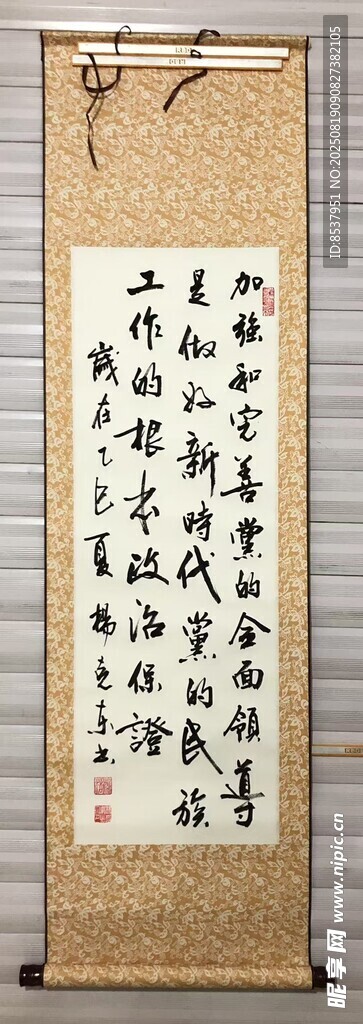 加強和完善黨的全面領導
是做好新時代黨的民族
工作的根本政治保證
歲在乙巳夏楊克東书
BH:8537951 NO:20250819090827382105
昵享网 www.nipic.cn